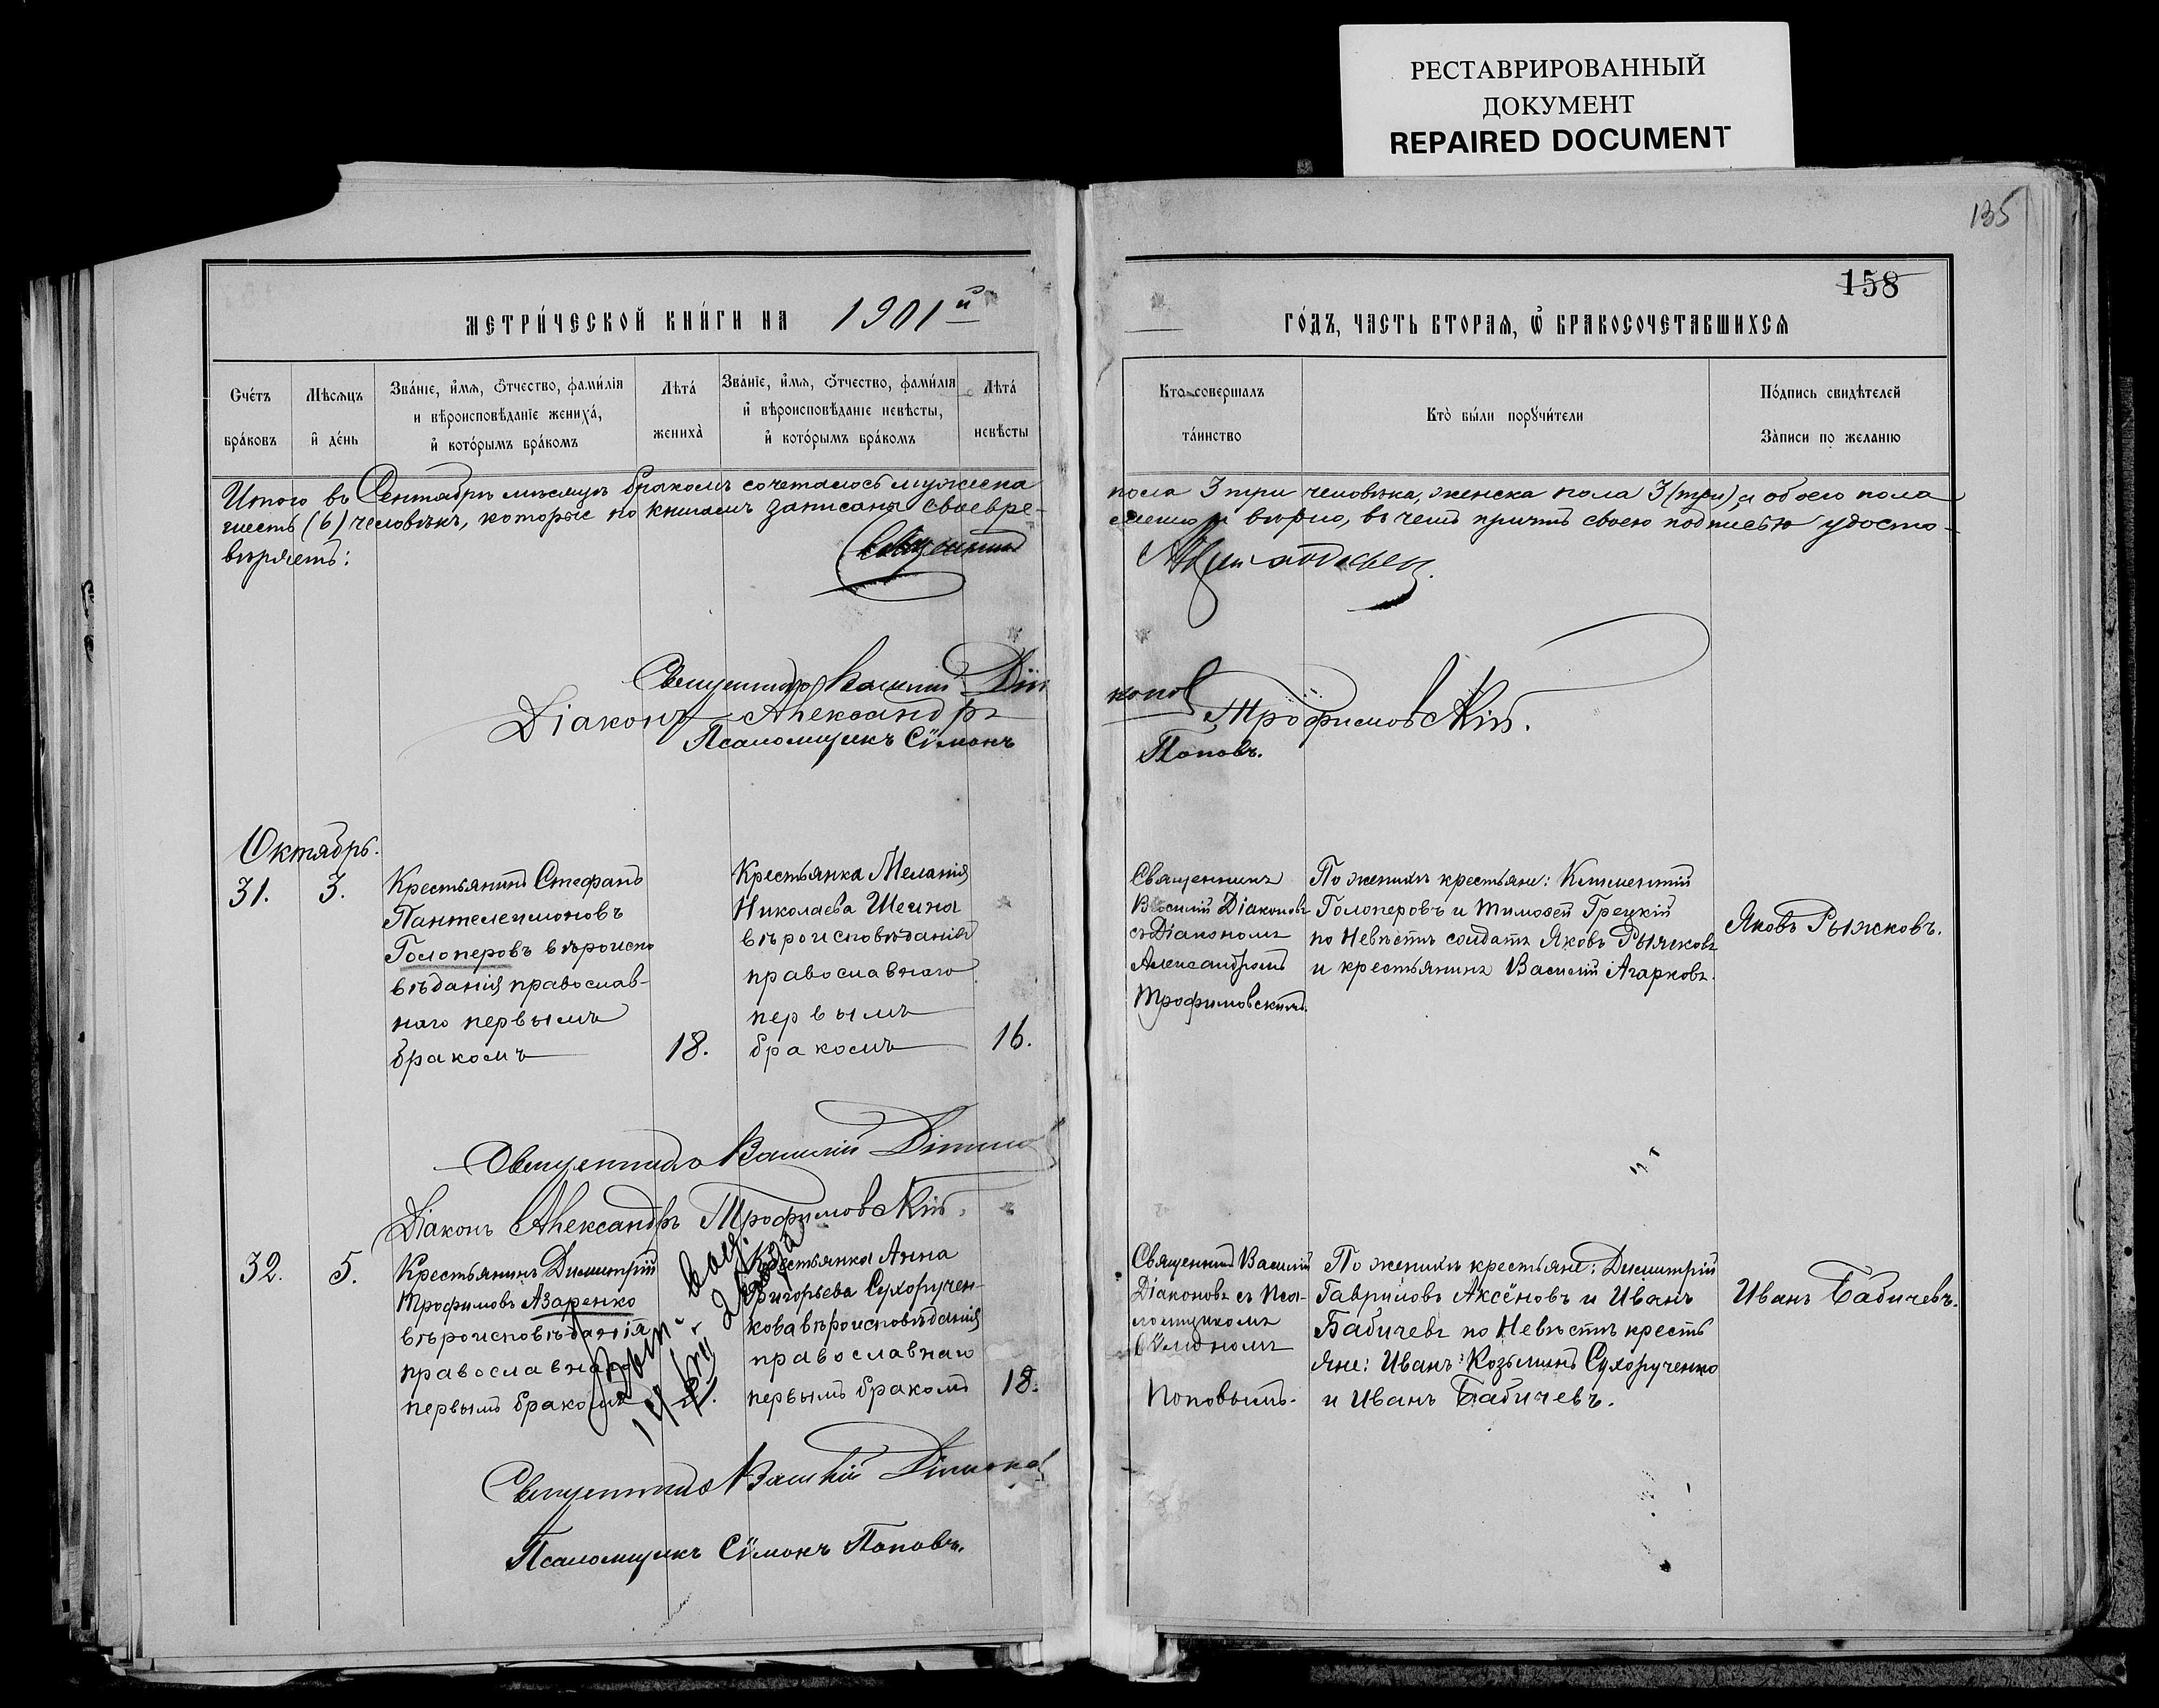 РЕСТАВРИРОВАННЫЙ
ДОКУМЕНТ
REPAIRED DOCUMENT
135
158
МЕТРИ́ЧЕСКОЙ КНИ́ГИ НА 1901 й
ГО́ДЪ, ЧАСТЬ ВТОРАѦ, Ѿ БРАКОСОЧЕТАВШИХСѦ
Сче́тъ бра́ковъ
Мѣсѧцъ и де́нь
Зва́нїе, и́мѧ, ѻ҆́тчество, фами́лїѧ и вѣроисповѣ́данїе жениха́, и кото́рымъ бра́комъ
Лѣта́ жениха̀
Зва́нїе, и́мѧ, ѻ҆́тчество, фами́лїѧ и вѣроисповѣ́данїе невѣ́сты, и кото́рымъ бра́комъ
Лѣта́ невѣ́сты
Кто совершалъ та́инство
Кто̀ бы́ли порꙋчи́тели
По́дпись свидѣ́телей За́писи по желанїю
Итого въ Сентябрѣ мѣсяцѣ бракомъ сочеталось мужеска пола 3 три человѣка, женска пола 3 (три), а обоего пола
шесть (6) человѣкъ, которые по книгамъ записаны своевременно и вѣрно, въ чемъ причтъ своею подписью удосто-
вѣряетъ:
Священникъ Василій Діаконовъ
Діаконъ Александръ Трофимовскій.
Псаломщикъ Сѵмонъ Поповъ.
Октябрь.
31. 3.
Крестьянинъ Стефанъ
Пантелеимоновъ
Голоперовъ вѣроиспо
вѣданія православ-
наго первымъ
бракомъ
18.
Крестьянка Меланія
Николаева Шеина
вѣроисповѣданія
православнаго
первымъ
бракомъ
16.
Священникъ
Василій Діаконовъ
съ Діакономъ
Александромъ
Трофимовскимъ.
По женихѣ крестьяне: Климентій
Голоперовъ и Тимоѳей Грецкій
по Невѣстѣ солдатъ Яковъ Рыжковъ
и крестьянинъ Василій Агарковъ.
Яковъ Рыжковъ.
Священникъ Василій Діаконовъ
Діаконъ Александръ Трофимовскій.
32. 5.
Крестьянинъ Димитрій
Трофимовъ Азаренко
вѣроисповѣданія
православнаго
первымъ бракомъ
Крестьянка Анна
Григорьева Сухоручен-
кова вѣроисповѣданія
православнаго
первымъ бракомъ
18.
Священникъ Василій
Діаконовъ съ Пса-
ломщикомъ
Сѵмономъ
Поповымъ.
По женихѣ крестьяне: Димитрій
Гавриловъ Аксёновъ и Иванъ
Бабичевъ по Невѣстѣ кресть
яне: Иванъ Козьминъ Сухорученко
и Иванъ Бабичевъ.
Иванъ Бабичевъ.
Священникъ Василій Діаконовъ
Псаломщикъ Сѵмонъ Поповъ.